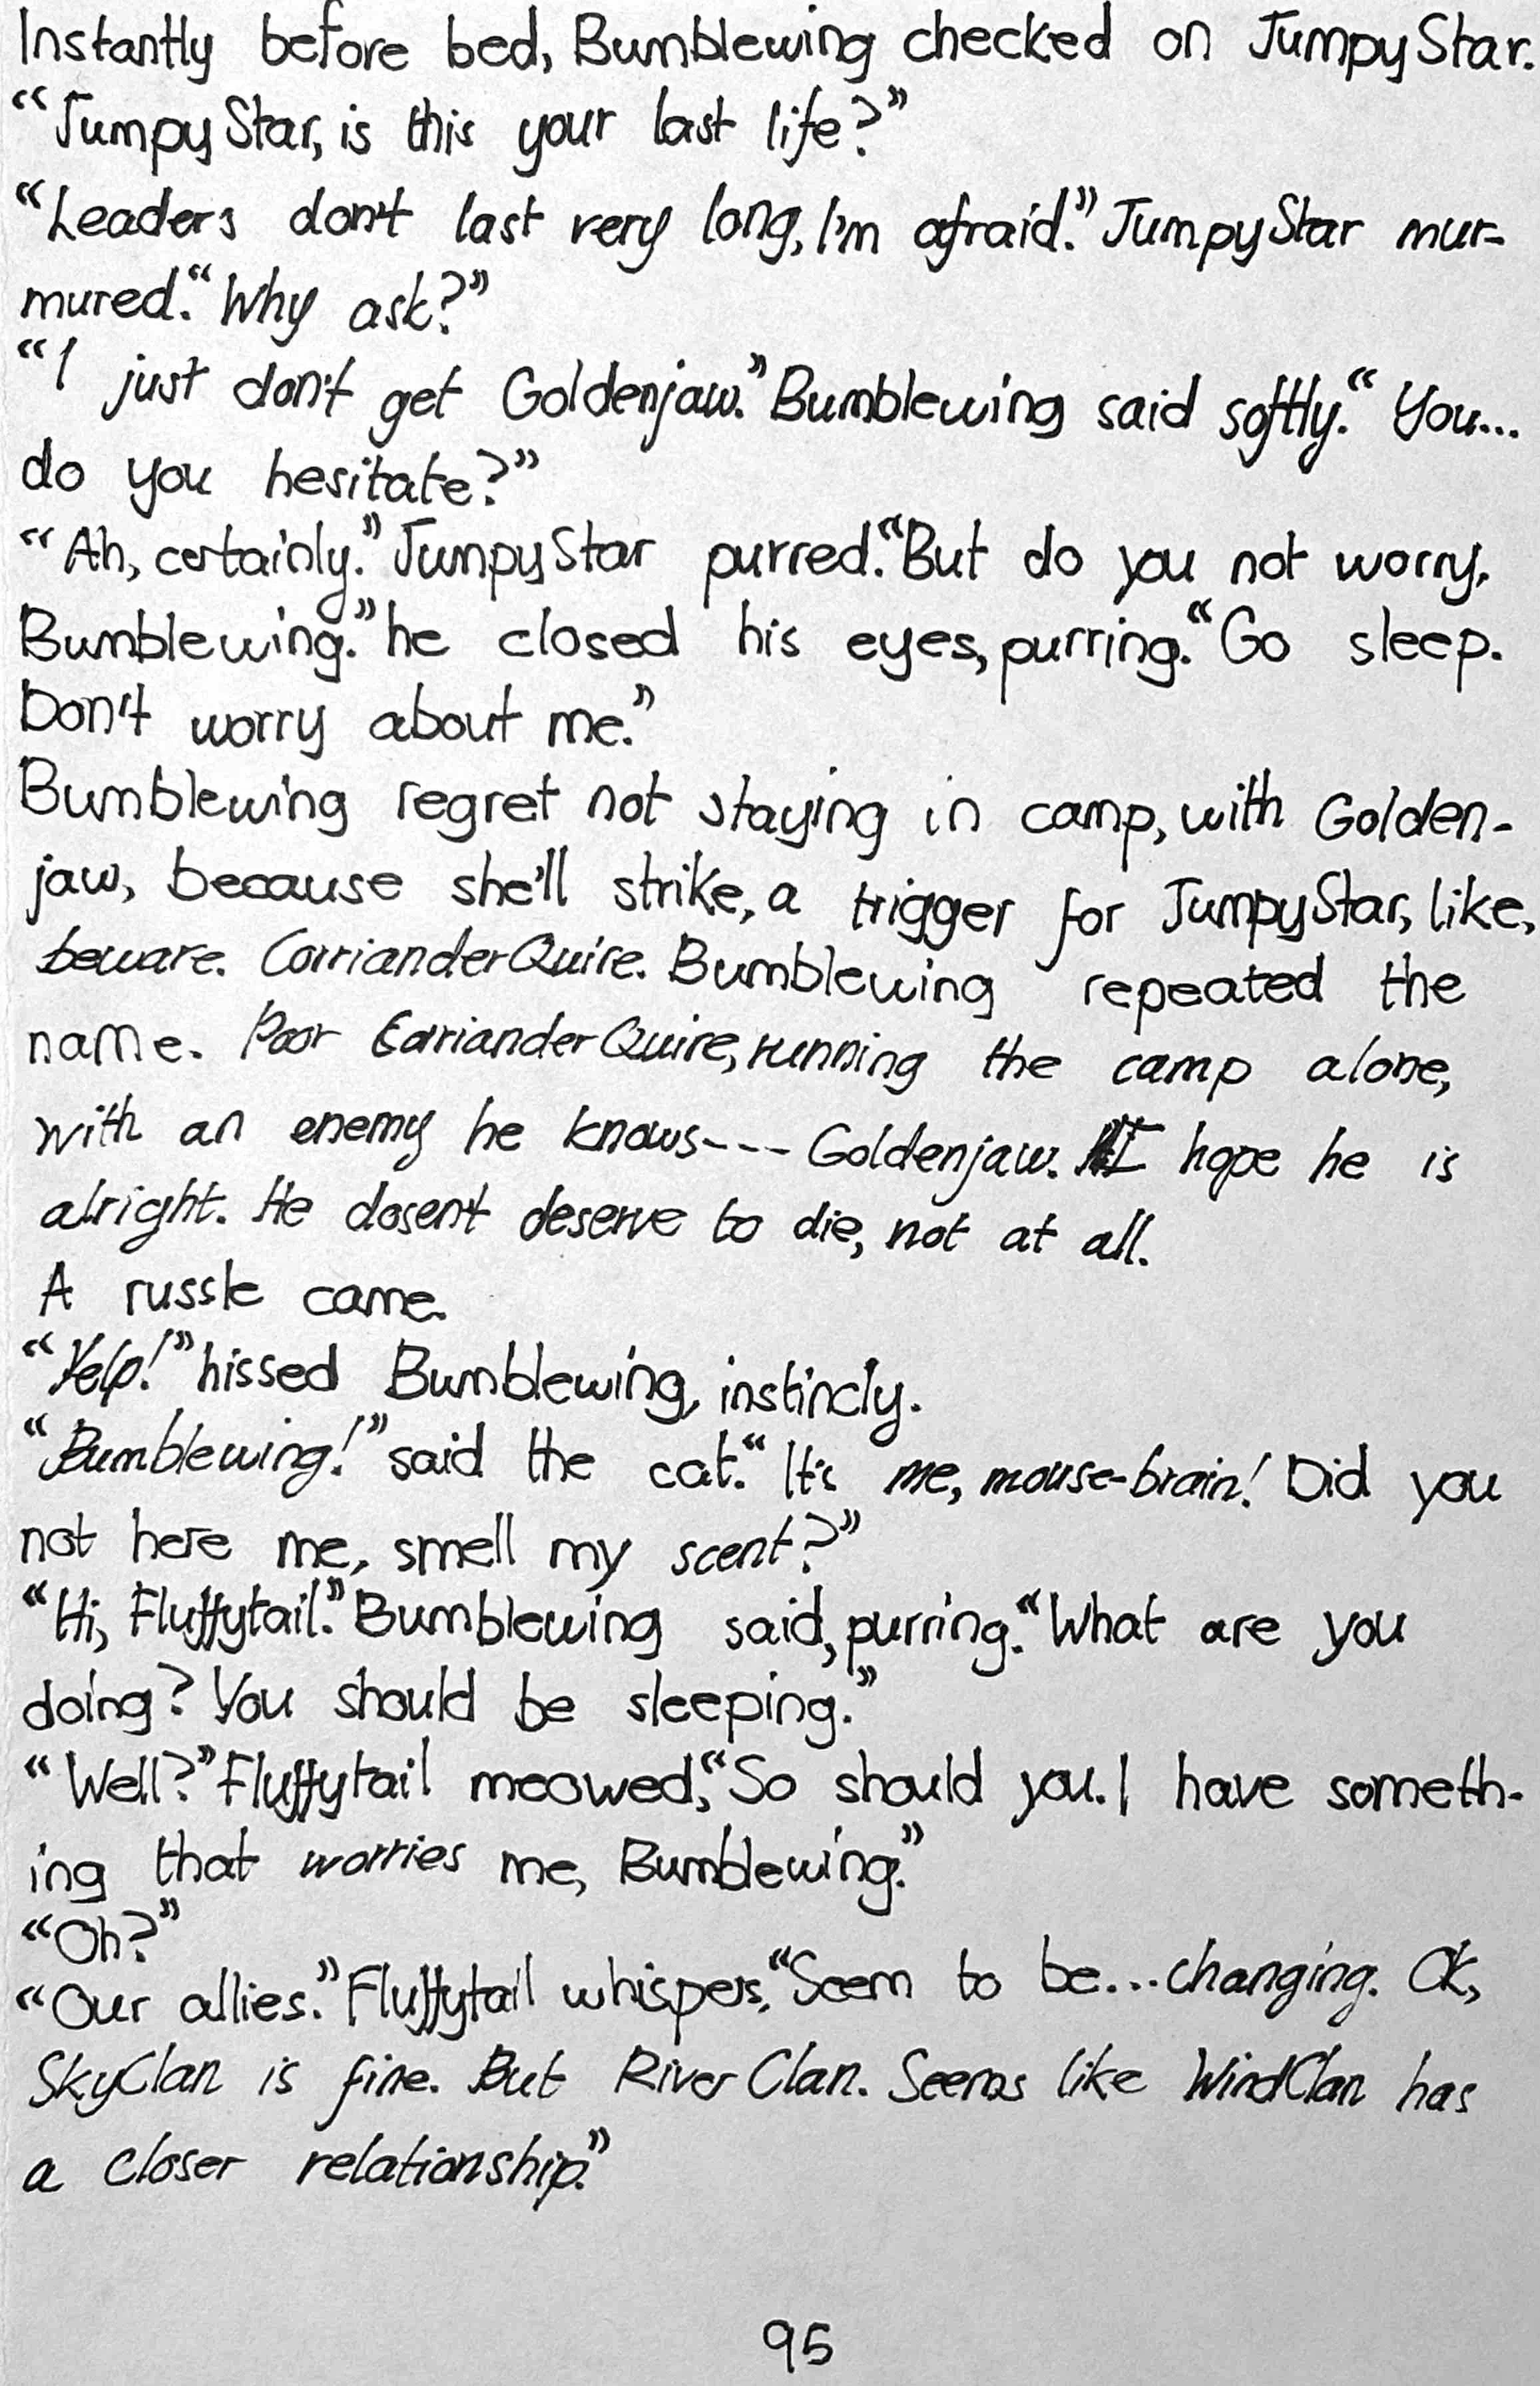 Instantly before bed, Bumblewing checked on JumpyStar.
“JumpyStar, is this your last life?”
“Leaders don't last very long, I'm afraid.” JumpyStar mur-
mured. “Why ask?”
“I just don't get Goldenjaw.” Bumblewing said softly. “You...
do you hesitate?”
“Ah, certainly.” JumpyStar purred. “But do you not worry,
Bumblewing.” he closed his eyes, purring. “Go sleep.
Don't worry about me.”
Bumblewing regret not staying in camp, with Golden-
jaw, because she'll strike, a trigger for JumpyStar, like,
beware. CorrianderQuire. Bumblewing repeated the
name. Poor CorrianderQuire, running the camp alone,
with an enemy he knows--- Goldenjaw. I hope he is
alright. He dosent deserve to die, not at all.
A russle came.
“Yelp!” hissed Bumblewing, instincly.
“Bumblewing!” said the cat. “It's me, mouse-brain! Did you
not here me, smell my scent?”
“Hi, Fluffytail.” Bumblewing said, purring. “What are you
doing? You should be sleeping.”
“Well?” Fluffytail meowed, “So should you. I have someth-
ing that worries me, Bumblewing.”
“Oh?”
“Our allies.” Fluffytail whispers, “Seem to be...changing. Ok,
SkyClan is fine. But RiverClan. Seems like WindClan has
a closer relationship.”
95